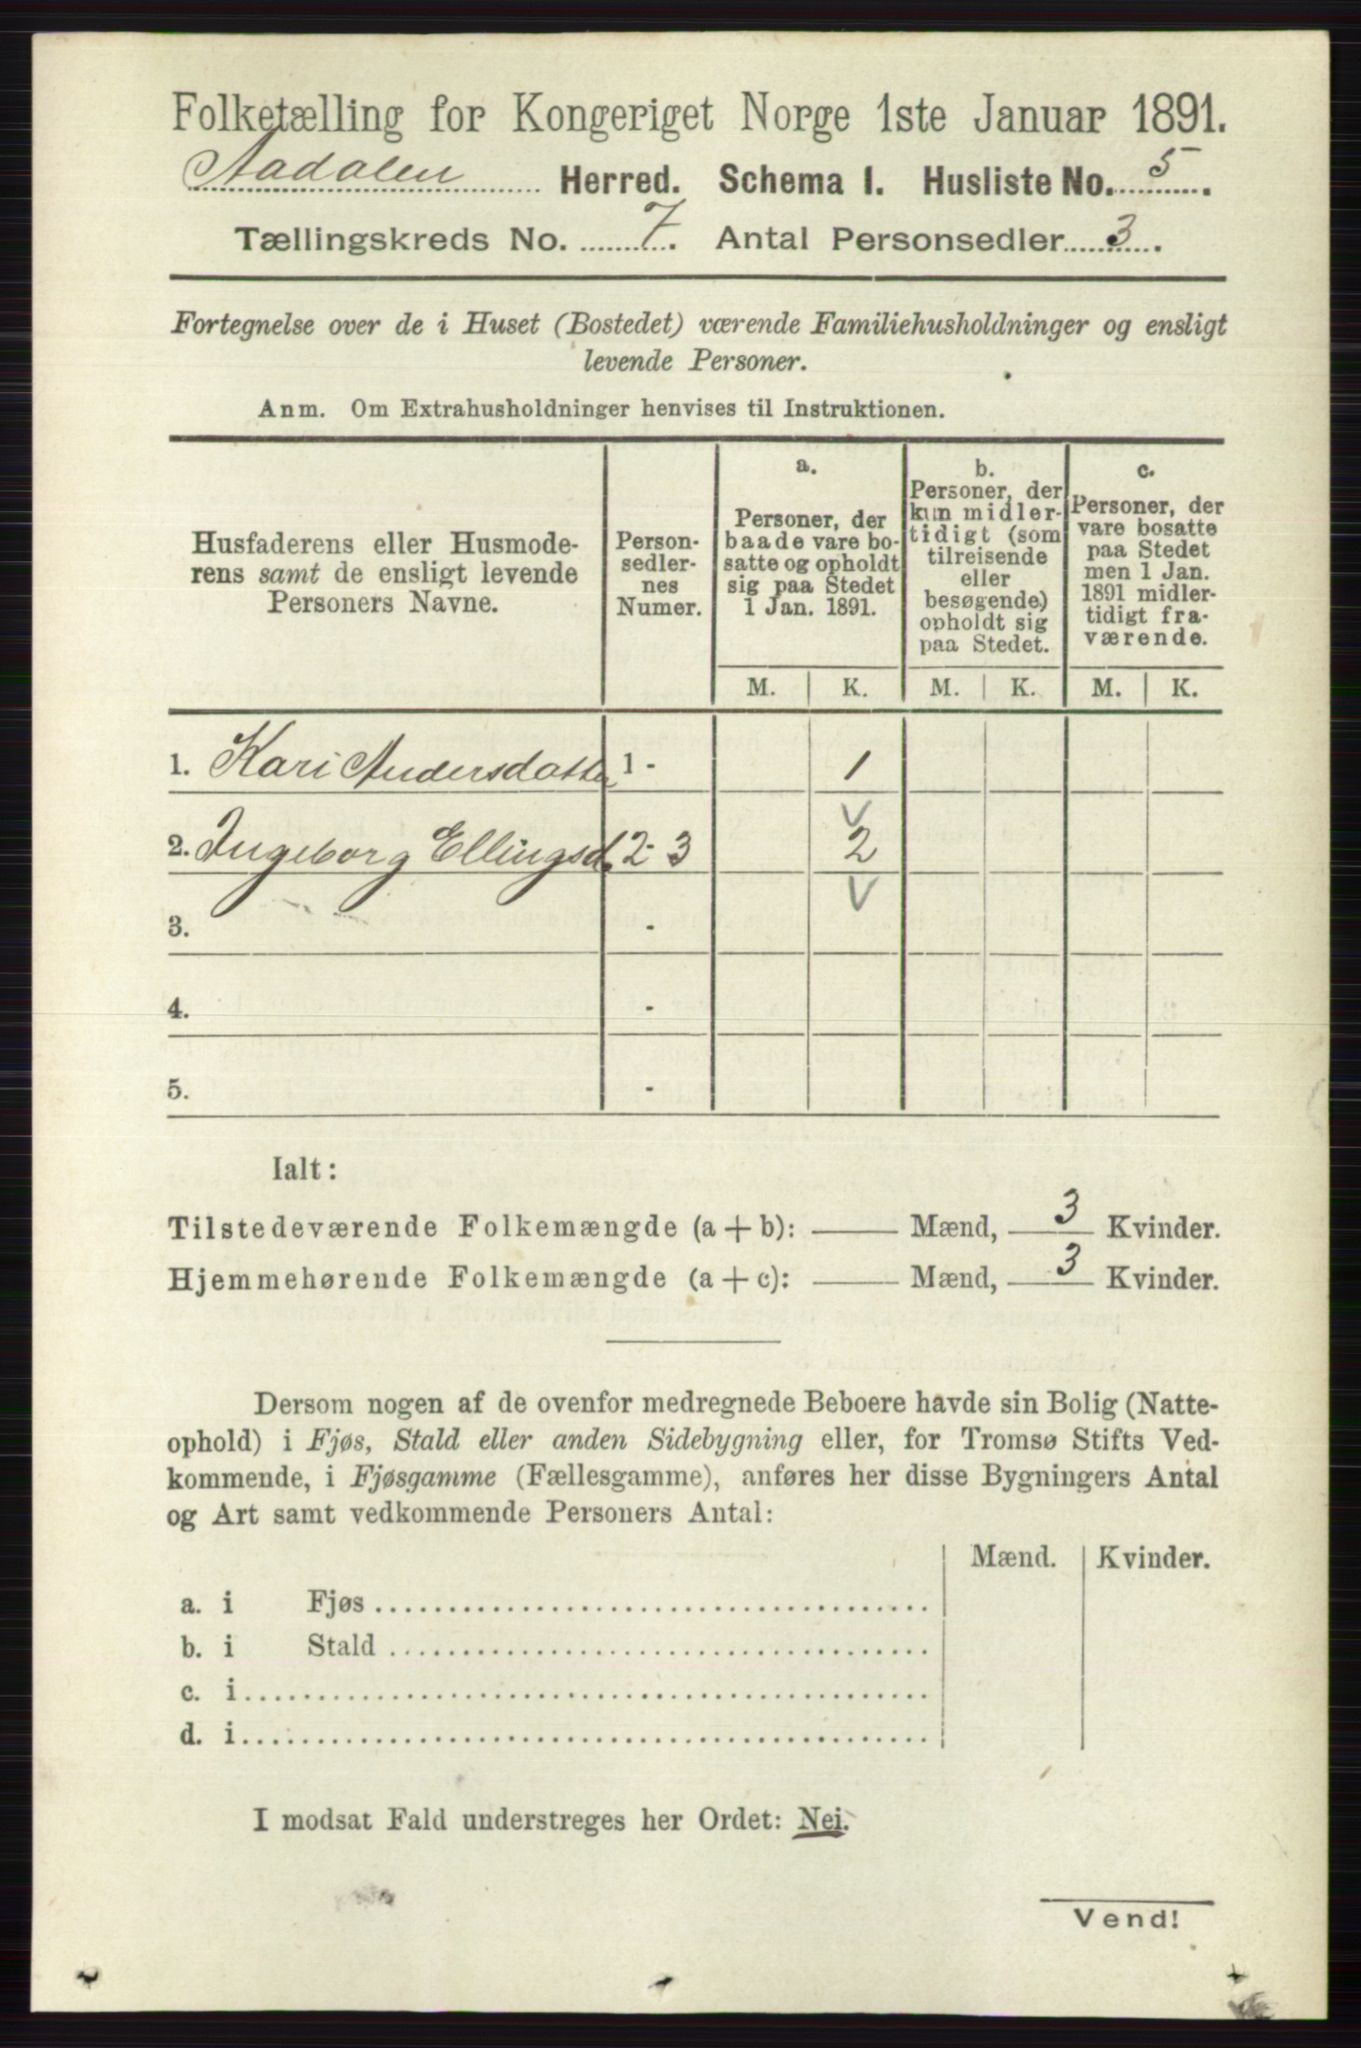 Folketælling for Kongeriget Norge 1ste Januar 1891.
Aadalen Herred. Schema I. Husliste No. 5.
Tællingskreds No. 7. Antal Personsedler 3.
Fortegnelse over de i Huset (Bostedet) værende Familiehusholdninger og ensligt
levende Personer.
Anm. Om Extrahusholdninger henvises til Instruktionen.
Husfaderens eller Husmode-
rens samt de ensligt levende
Personers Navne.
Person-
sedler-
nes
Numer.
a.
Personer, der
baade vare bo-
satte og opholdt
sig paa Stedet
1 Jan. 1891.
b.
Personer, der
kun midler-
tidigt (som
tilreisende
eller
besøgende)
opholdt sig
paa Stedet.
c.
Personer, der
vare bosatte
paa Stedet
men 1 Jan.
1891 midler-
tidigt fra-
værende.
M. K. M. K. M. K.
1. Kari Andersdatter 1 - 1
2. Ingeborg Ellingsd. 2-3 2
3. -
4. -
5. -
Ialt:
Tilstedeværende Folkemængde (a + b): — Mænd, 3 Kvinder.
Hjemmehørende Folkemængde (a + c): — Mænd, 3 Kvinder.
Dersom nogen af de ovenfor medregnede Beboere havde sin Bolig (Natte-
ophold) i Fjøs, Stald eller anden Sidebygning eller, for Tromsø Stifts Ved-
kommende, i Fjøsgamme (Fællesgamme), anføres her disse Bygningers Antal
og Art samt vedkommende Personers Antal:
Mænd. Kvinder.
a. i Fjøs
b. i Stald
c. i
d. i
I modsat Fald understreges her Ordet: Nei.
Vend!